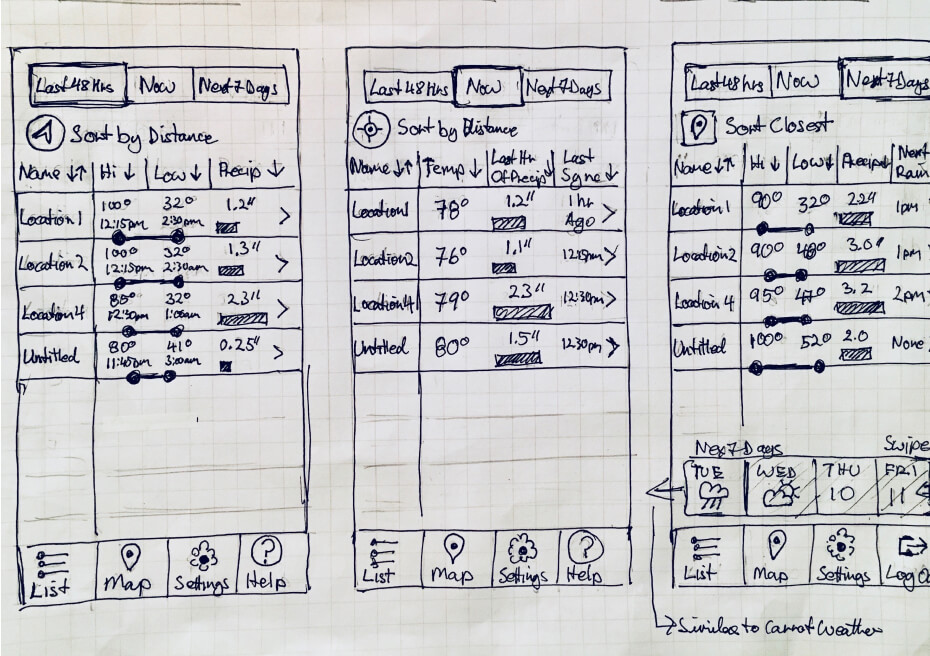 Last 48 Hrs Now Next 7 Days
Sort by Distance
Name ↓↑ Hi ↓ Low ↓ Precip ↓
Location 1 100° 32° 1.2"
12:15pm 2:30pm
Location 2 100° 32° 1.3"
12:15pm 2:30am
Location 4 80° 32° 2.3"
12:30pm 1:00am
Untitled 80° 41° 0.25"
11:45pm 3:00am
List Map Settings ? Help
Last 48 Hrs Now Next 7 Days
Sort by Distance
Name ↓↑ Temp ↓ Last Hr Of Precip ↓ Last Sync ↓
Location 1 78° 1.2" 1 hr Ago
Location 2 76° 1.1" 12:15pm
Location 4 79° 2.3" 12:30pm
Untitled 80° 1.5" 12:30pm
List Map Settings ? Help
Last 48 hrs Now Next 7 Days
Sort Closest
Name ↓↑ Hi ↓ Low ↓ Precip ↓ Next Rain
Location 1 90° 32° 1pm
Location 2 90° 3.0" 1pm
Location 4 95° 3.2 2pm
Untitled 100° 52° 2.0 None
Next 7 Days Swipe
TUE WED THU FRI
10 11
List Map Settings Log O
Similar to Carrot Weather